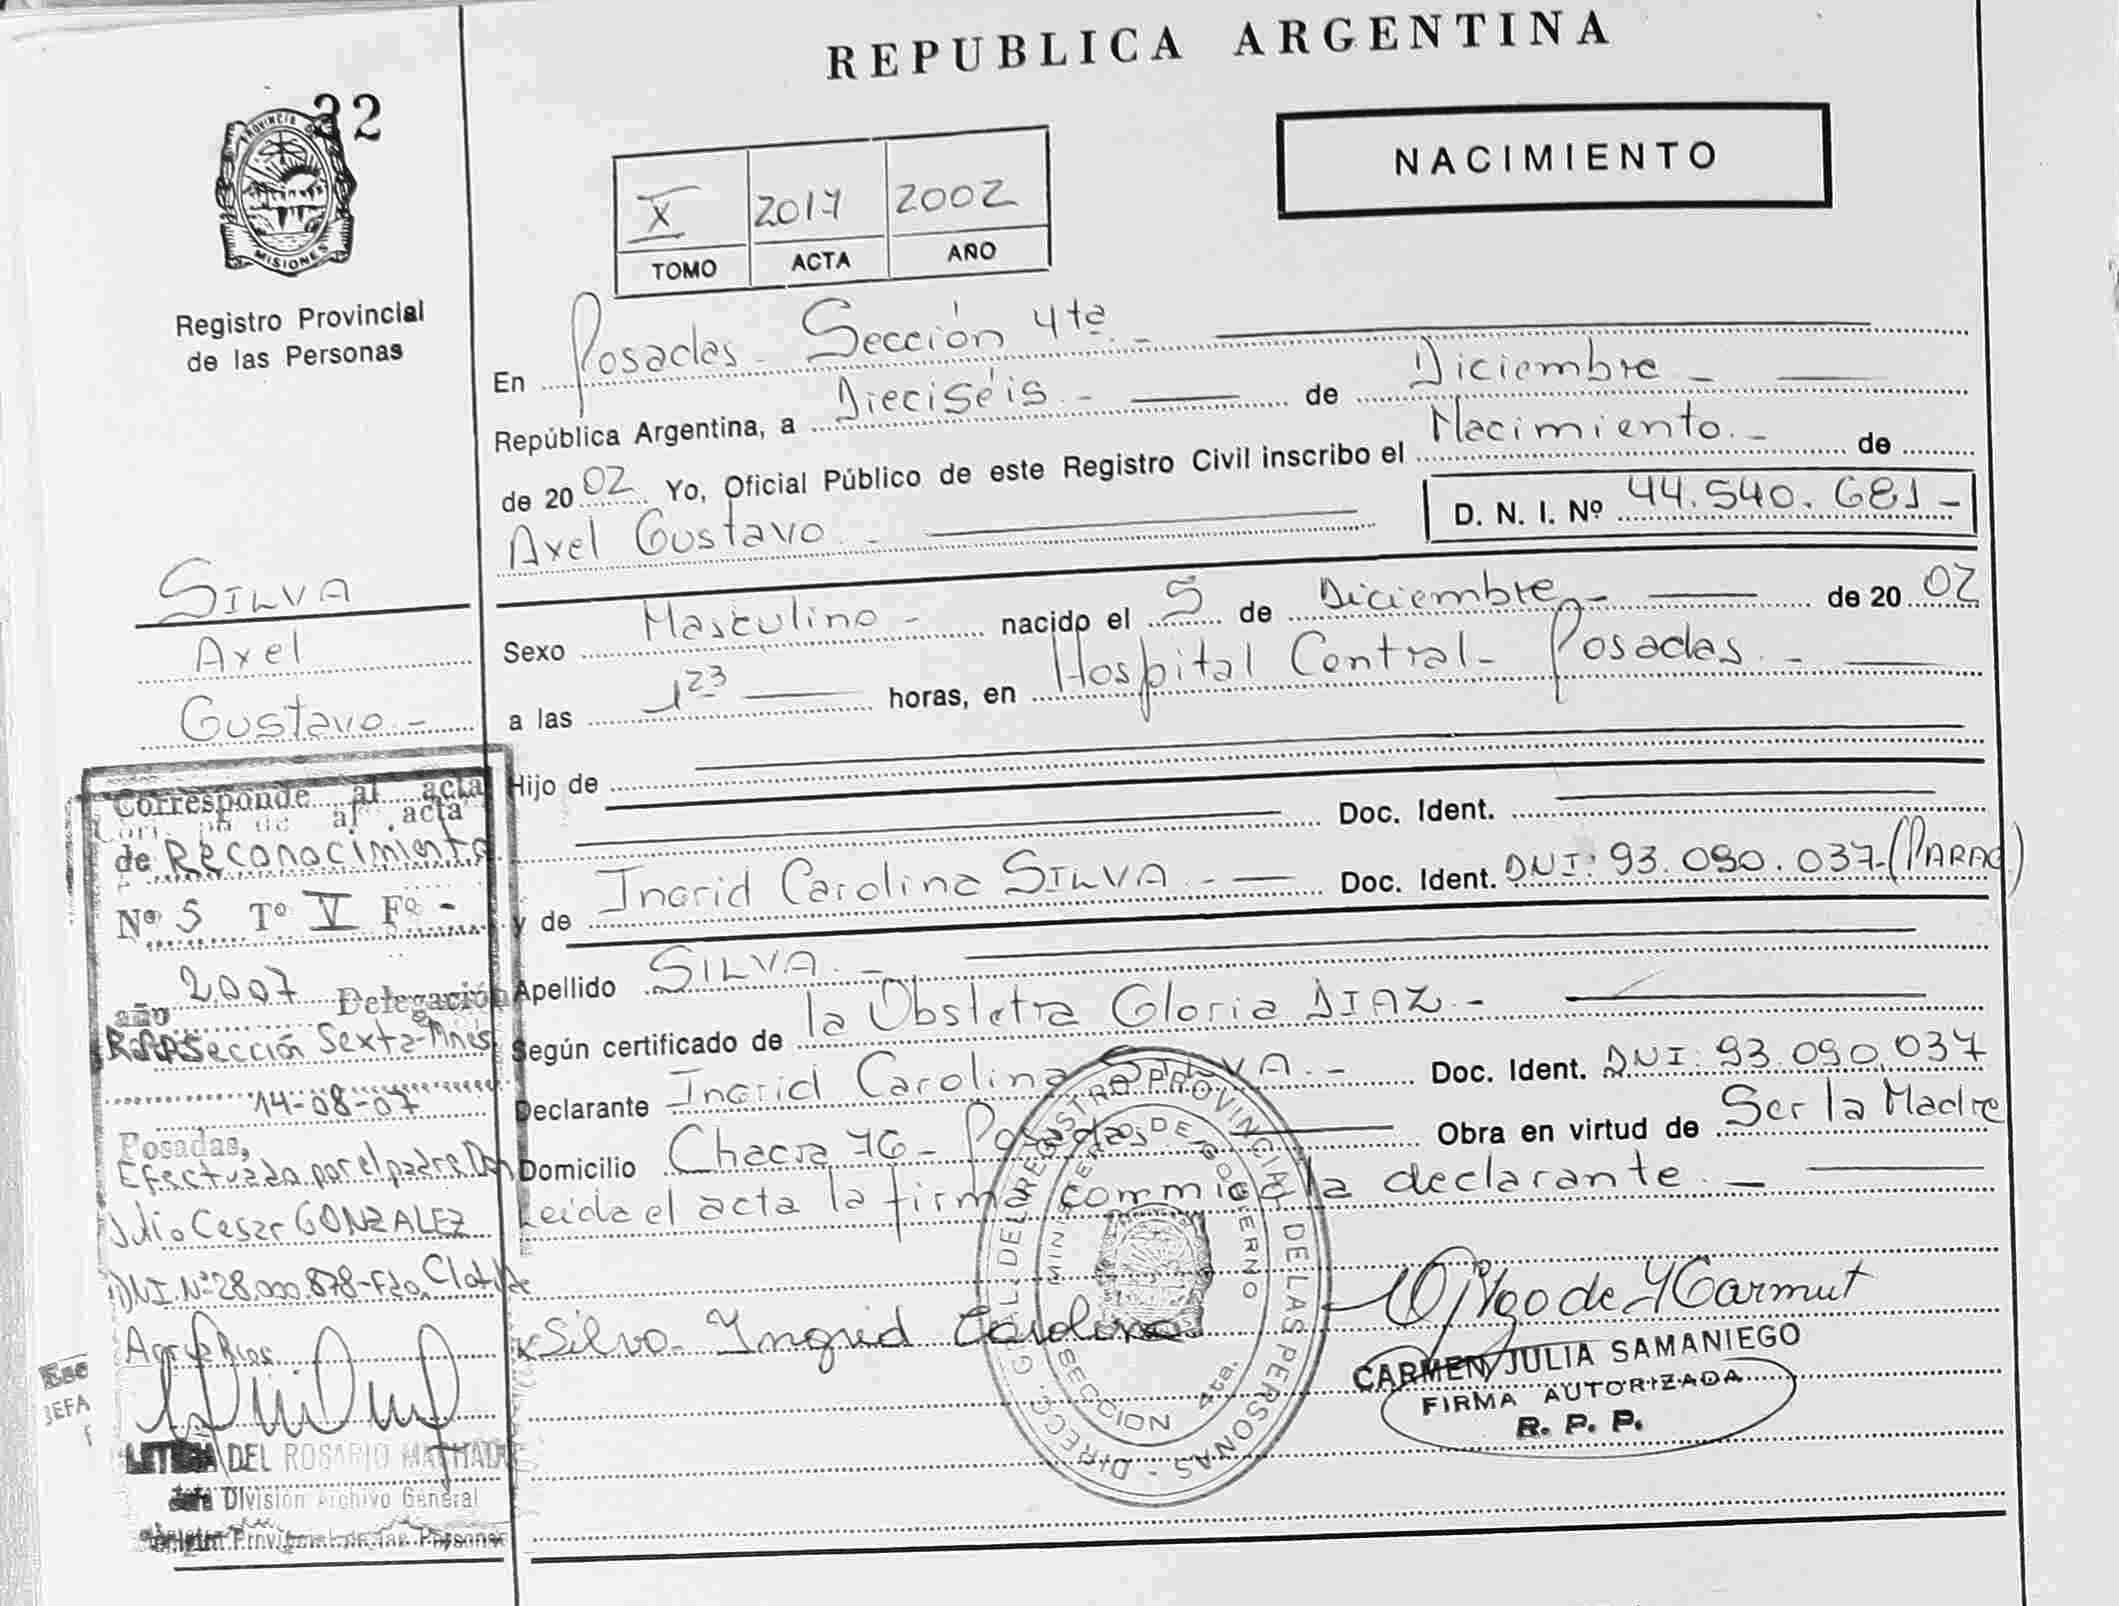 REPUBLICA ARGENTINA
22
PROVINCIA DE
MISIONES
Registro Provincial
de las Personas
NACIMIENTO
X 2017 2002
TOMO ACTA AÑO
En Posadas - Sección 4ta. -
República Argentina, a Dieciséis - de Diciembre -
de 2002 Yo, Oficial Público de este Registro Civil inscribo el Nacimiento. - de
Axel Gustavo. -
D. N. I. Nº 44.540.681 -
SILVA
Axel
Gustavo. -
Sexo Masculino - nacido el 5 de Diciembre - de 2002
a las 1 23 horas, en Hospital Central - Posadas. -
Hijo de
Doc. Ident.
y de Ingrid Carolina SILVA. - Doc. Ident. DNI: 93.090.037-(PARAG)
Apellido SILVA. -
Según certificado de la Obstetra Gloria DIAZ. -
Declarante Ingrid Carolina SILVA. - Doc. Ident. DNI: 93.090.037
Domicilio Chacra 76 - Posadas Obra en virtud de Ser la Madre
Leida el acta la firma commigo la declarante. -
x Silva Ingrid Carolina
CARMEN JULIA SAMANIEGO
FIRMA AUTORIZADA
R. P. P.
DIREC. GRAL. DEL REGISTRO PROVINCIAL DE LAS PERSONAS -
MINISTERIO DE GOBIERNO
SECCION 4ta.
Corresponde al acta
de Reconocimiento
Nº 5 Tº V Fº -
año 2007 Delegación
RPP Sección Sexta-Mnes
14-08-07
Posadas,
Efectuada por el padre Don
Julio Cesar GONZALEZ
DNI. Nº 28.000.878-Fdo.
DEL ROSARIO
División Archivo General
Provincial de las Personas